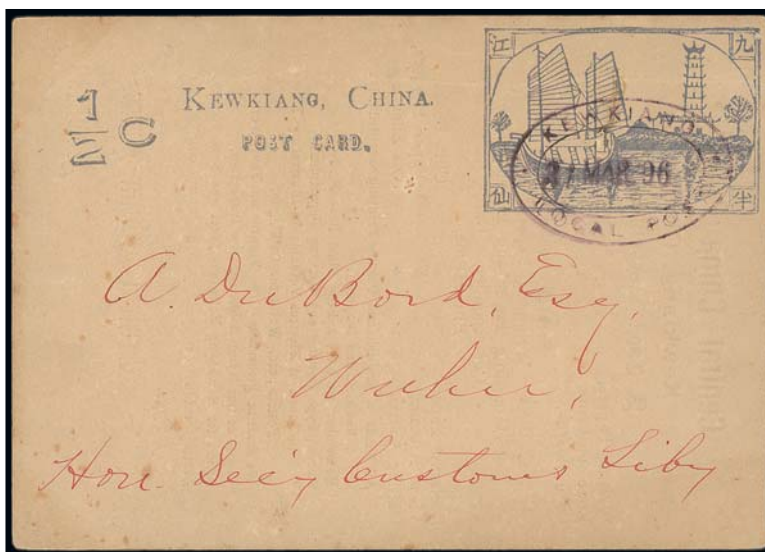 江 九
1/2 C
KEWKIANG, CHINA.
POST CARD.
仙 半
KEWKIANG
27 MAR 96
LOCAL POST
A. DuBord, Esq,
Wuhu,
Hon. Sec'y Customs Liby